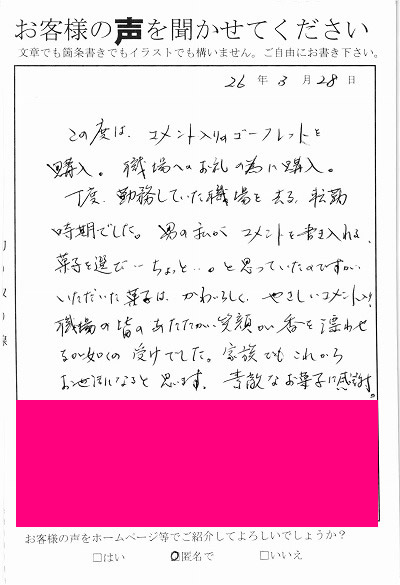 お客様の声を聞かせてください
文章でも箇条書きでもイラストでも構いません。ご自由にお書き下さい。
26 年 3 月 28 日
この度は、コメント入りのゴーフレットを
購入。職場へのお礼の為に購入。
丁度、勤務していた職場を去る、転勤
時期でした。男の私がコメントを書き入れる、
菓子を選び…ちょっと…。と思っていたのですが、
いただいた菓子は、かわいらしく、やさしいコメント入り、
職場の皆のあたたかい笑顔が香を漂わせ
るが如くの受けでした。家族でもこれから
お世話になると思います。素敵なお菓子に感謝。
お客様の声をホームページ等でご紹介してよろしいでしょうか?
□はい □匿名で □いいえ